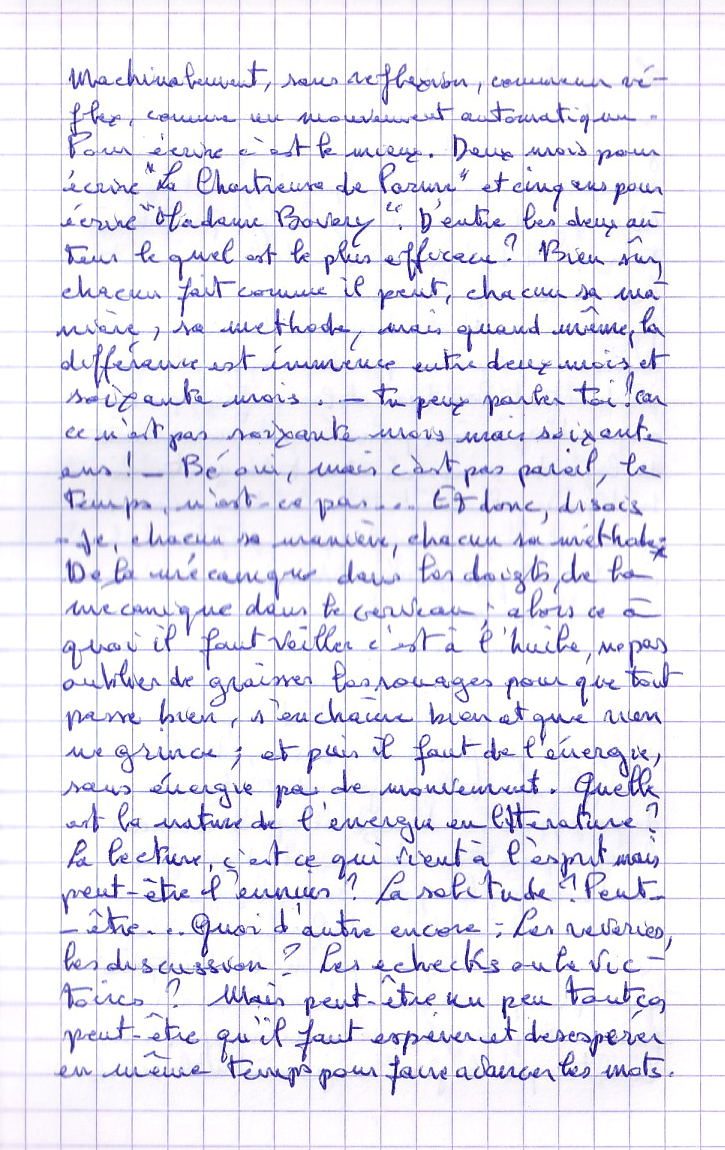 Machinalement, sans reflexion, comme un ré-
flex, comme un mouvement automatique.
Pour écrire c'est le mieux. Deux mois pour
écrire "La Chartreuse de Parme" et cinq ans pour
écrire "Madame Bovary". D'entre les deux au
teur le quel est le plus efficace ? Bien sûr,
chacun fait comme il peut, chacun sa ma
nière, sa methode, mais quand même, la
différence est immence entre deux mois et
soixante mois. . - tu peux parler toi ! car
ce n'est pas soixante mois mais soixante
ans ! - Bé oui, mais c'est pas pareil, le
temps, n'est-ce pas... Et donc, disais
-je, chacun sa manière, chacun sa méthode.
De la mécanique dans les doigts, de la
mecanique dans le cerveau ; alors ce à
quoi il faut veiller c'est à l'huile, ne pas
oublier de graisser les rouages pour que tout
passe bien, s'enchaîne bien et que rien
ne grince ; et puis il faut de l'énergie,
sans énergie pas de mouvement. Quelle
est la nature de l'énergie en litterature ?
La lecture, c'est ce qui vient à l'esprit mais
peut-être l'ennuies ? La solitude ? Peut-
-être... Quoi d'autre encore ; Les reveries,
les discussion ? Les echecks ou la vic-
toires ? Mais peut-être un peu tout ça,
peut-être qu'il faut espérer et desespérer
en même temps pour faire avancer les mots.